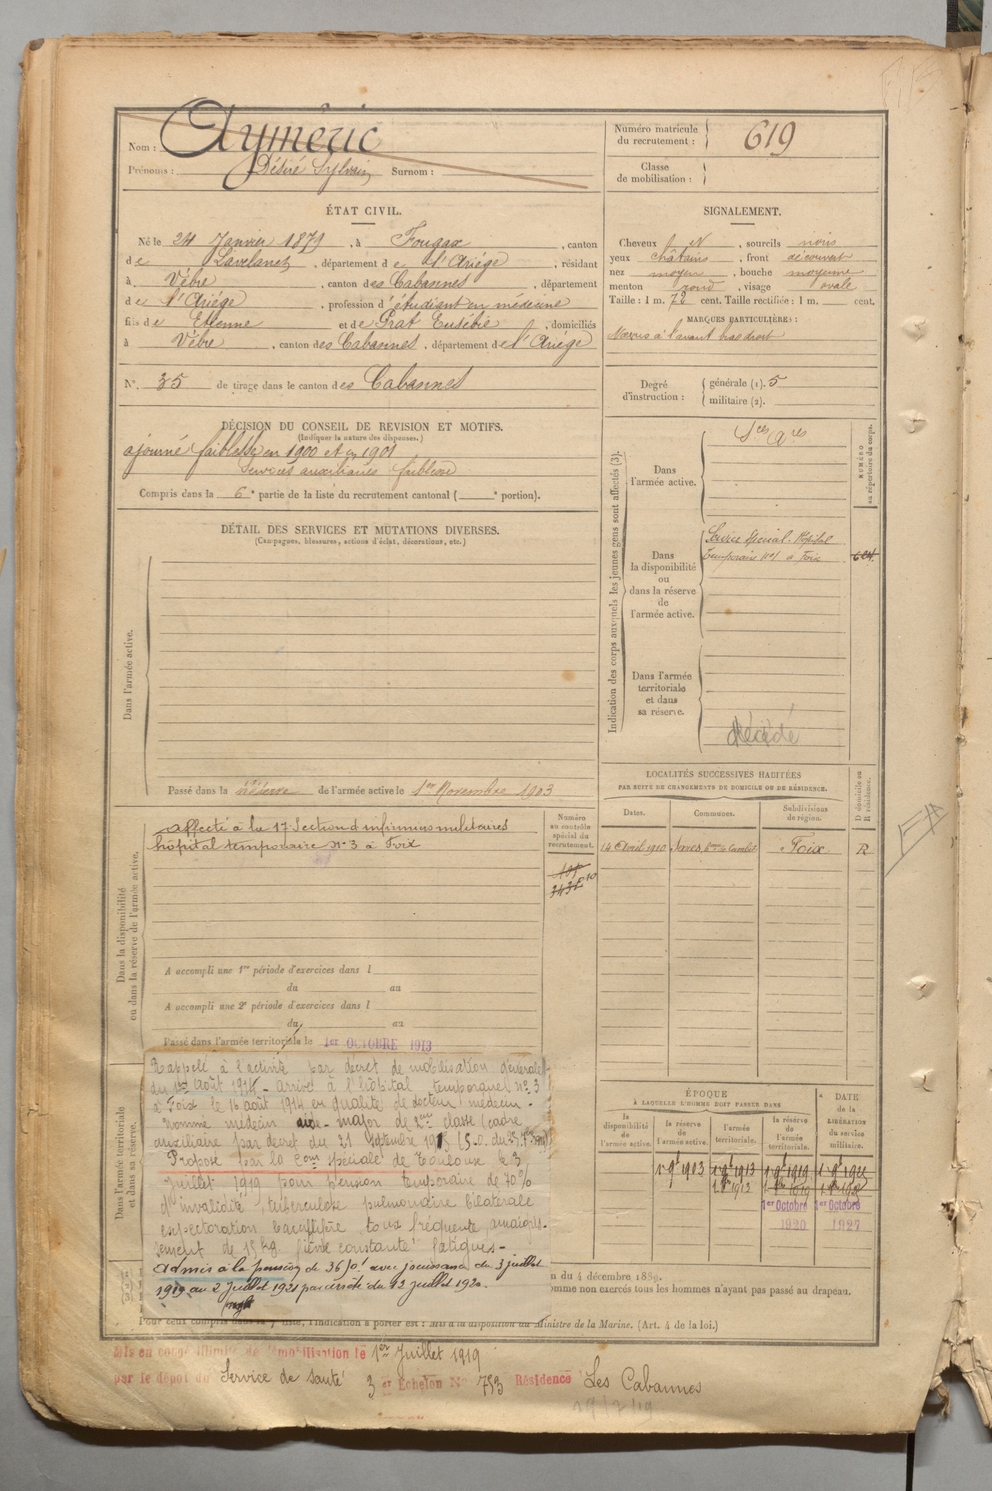 Nom : Aymeric
Prénoms : Désiré Sylvain Surnom :
Numéro matricule du recrutement : 619
Classe de mobilisation :
ÉTAT CIVIL.
Né le 24 Janvier 1879, à Fougax, canton
de Lavelanet, département de l'Ariége, résidant
à Vèbre, canton des Cabannes, département
de l'Ariége, profession d'étudiant en médecine
fils de Etienne et de Prat Eusébie, domiciliés
à Vèbre, canton des Cabannes, département de l'Ariége
N° 35 de tirage dans le canton des Cabannes
SIGNALEMENT.
Cheveux et N, sourcils noirs
yeux châtains, front découvert
nez moyen, bouche moyenne
menton rond, visage ovale
Taille : 1 m. 72 cent. Taille rectifiée : 1 m. cent.
MARQUES PARTICULIÈRES :
à l'avant bras droit
Degré d'instruction : générale (1). 5
militaire (2).
DÉCISION DU CONSEIL DE REVISION ET MOTIFS.
(Indiquer la nature des dispenses.)
ajourné faiblesse en 1900 et en 1901
Services auxiliaires faiblesse
Compris dans la 6e partie de la liste du recrutement cantonal ( e portion).
DÉTAIL DES SERVICES ET MUTATIONS DIVERSES.
(Campagnes, blessures, actions d'éclat, décorations, etc.)
Dans l'armée active.
Passé dans la réserve de l'armée active le 1er Novembre 1903
Indication des corps auxquels les jeunes gens sont affectés (3).
NUMÉRO au répertoire du corps.
Dans l'armée active.
Sces Ares
Dans la disponibilité ou dans la réserve de l'armée active.
Service spécial Hôpital
temporaire à Foix
Dans l'armée territoriale et dans sa réserve.
décédé
LOCALITÉS SUCCESSIVES HABITÉES
PAR SUITE DE CHANGEMENTS DE DOMICILE OU DE RÉSIDENCE.
D domicile ou R résidence.
Dates. Communes. Subdivisions de région.
14 Avril 1910 Foix R
Dans la disponibilité ou dans la réserve de l'armée active.
Affecté à la 17e Section d'infirmiers militaires
hôpital temporaire n° 3 à Foix
Numéro au contrôle spécial du recrutement.
A accompli une 1re période d'exercices dans l
du au
A accompli une 2e période d'exercices dans l
du au
Passé dans l'armée territoriale le 1er OCTOBRE 1913
Dans l'armée territoriale et dans sa réserve.
Rappelé à l'activité par décret de mobilisation générale
du 1er Août 1914 - arrivé à l'hôpital temporaire n° 3
à Foix le 16 août 1914 en qualité de docteur médecin -
Nommé médecin aide-major de 2eme classe (cadre
auxiliaire par décret du 31
Proposé par la Com spéciale de Toulouse le 3
Juillet 1919 pour pension temporaire de 70%
d'invalidité, tuberculose pulmonaire bilatérale
expectoration bacillifère toux fréquente amaigris-
sement de 15 kg fièvre constante fatigues -
Admis à la pension de avec jouissance du 3 juillet
1919 au 2 Juillet 1921 par arrêté du 12 Juillet 1920.
ÉPOQUE
À LAQUELLE L'HOMME DOIT PASSER DANS
la disponibilité de l'armée active. la réserve de l'armée active. l'armée territoriale. la réserve de l'armée territoriale.
DATE de la LIBÉRATION du service militaire.
1er Octobre 1920
1er Octobre 1927
n du 4 décembre 1889.
omme non exercés tous les hommes n'ayant pas passé au drapeau.
Pour ceux compris dans la 7e liste, l'indication à porter est : Mis à la disposition du Ministre de la Marine. (Art. 4 de la loi.)
Mis en congé illimité de démobilisation le 1er Juillet 1919
par le dépôt du Service de santé 3 er Echelon N° 753 Résidence Les Cabannes